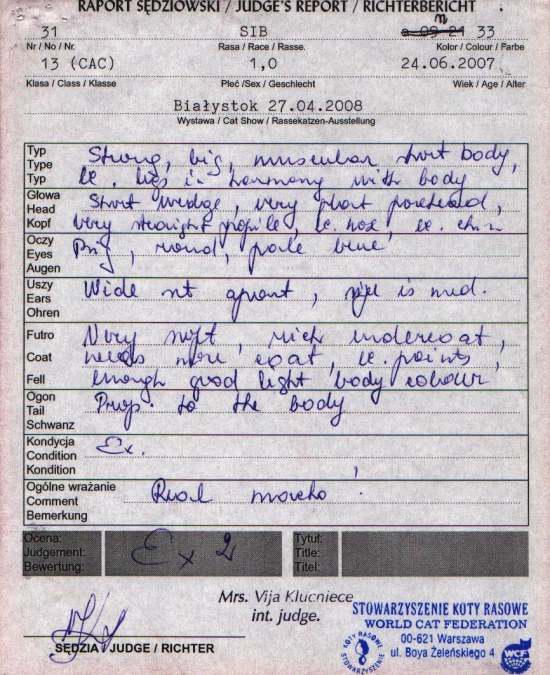 RAPORT SĘDZIOWSKI / JUDGE'S REPORT / RICHTERBERICHT
31 SIB n 33
Nr / No / Nr. Rasa / Race / Rasse. Kolor / Colour / Farbe
13 (CAC) 1,0 24.06.2007
Klasa / Class / Klasse Płeć /Sex / Geschlecht Wiek / Age / Alter
Białystok 27.04.2008
Wystawa / Cat Show / Rassekatzen-Ausstellung
Typ Type Typ Strong, big, muscular short body,
legs in harmony with body
Głowa Head Kopf Short wedge, very short forehead,
very straight profile, ex. nose, ex. chin
Oczy Eyes Augen Big, round, pale blue
Uszy Ears Ohren Wide set apart, size is med.
Futro Coat Fell Very soft, rich undercoat,
needs more coat, ex. points,
enough good light body colour,
Ogon Tail Schwanz Prop. to the body
Kondycja Condition Kondition Ex.
Ogólne wrażanie Comment Bemerkung Real macho!
Ocena: Judgement: Bewertung: Ex 2 Tytuł: Title: Titel:
Mrs. Vija Klucniece
int. judge.
SĘDZIA / JUDGE / RICHTER
STOWARZYSZENIE KOTY RASOWE
WORLD CAT FEDERATION
00-621 Warszawa
ul. Boya Żeleńskiego 4
KOTY RASOWE STOWARZYSZENIE
WCF